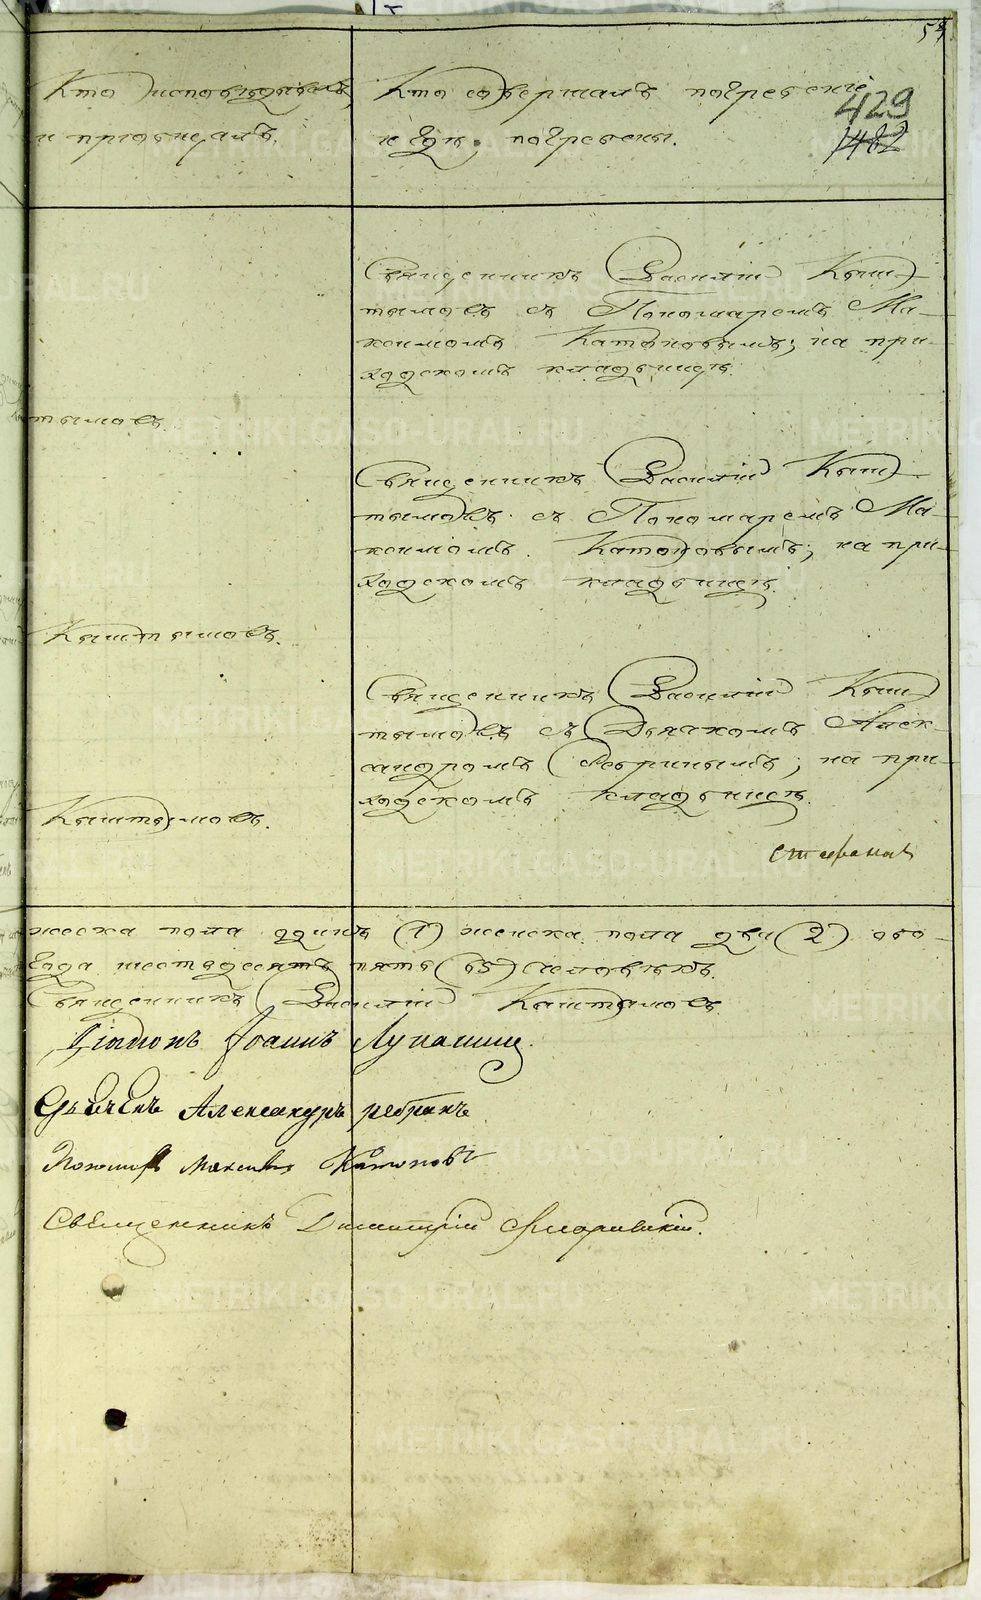 54
Кто исповѣдывалъ
и пріобщалъ.
Кто совершалъ погребеніе
и гдѣ, погребены.
429
1482
Священникъ Василій Кыш-
тымовъ съ Пономаремъ Ма-
ксимомъ Катоновымъ; на при-
ходскомъ кладбищѣ.
тымовъ.
Священникъ Василій Кыш-
тымовъ съ Пономаремъ Ма-
ксимомъ Катоновымъ; на при-
ходскомъ кладбищѣ.
Кыштымовъ.
Священникъ Василій Кыш-
тымовъ съ Дьякомъ Алек-
сандромъ Ребринымъ; на при-
ходскомъ кладбищѣ.
Кыштымовъ.
жеска пола одинъ (1) женска пола двѣ (2) обо-
его шестьдесятъ пять (65) человѣкъ.
Священникъ Василій Кыштымовъ
Іоаннъ
Александръ ребринъ
Максимъ Катоновъ
Священникъ Димитрій
METRIKI.GASO-URAL.RU